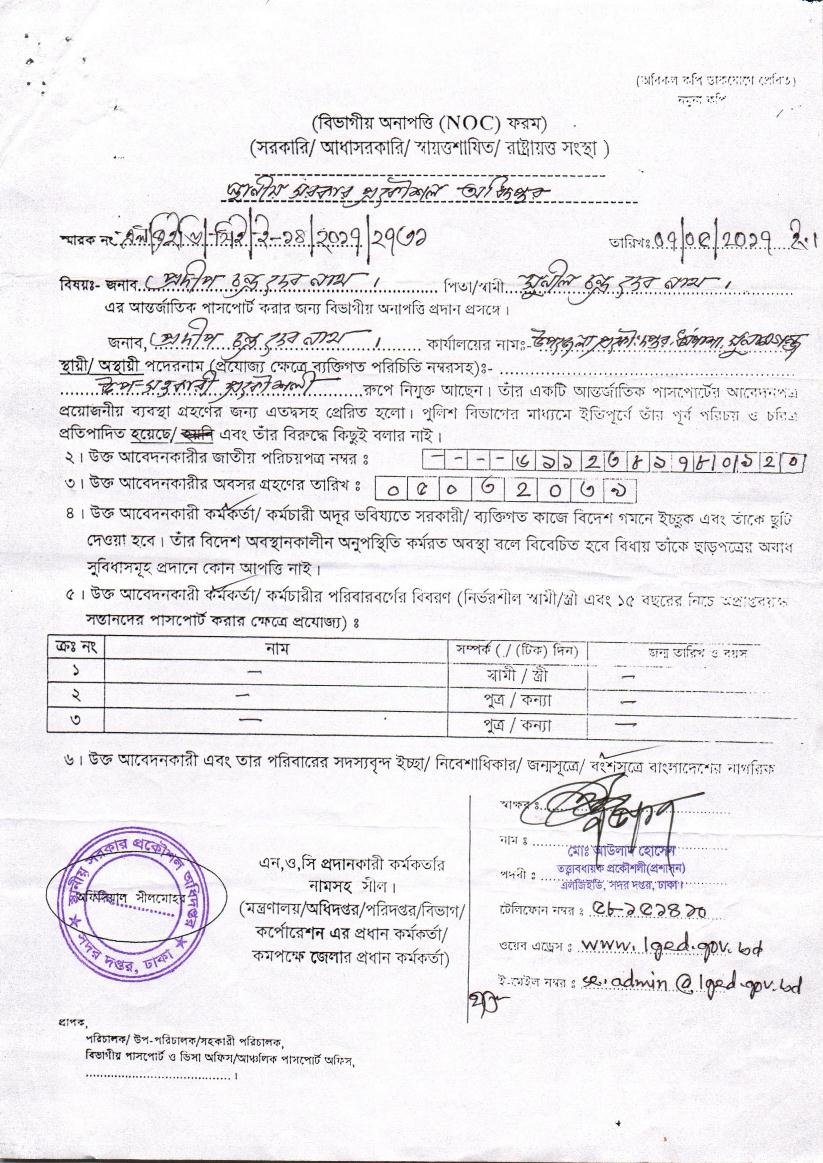 (অবিকল কপি ডাকযোগে প্রেরিত)
নমুনা কপি
(বিভাগীয় অনাপত্তি (NOC) ফরম)
(সরকারি/ আধাসরকারি/ স্বায়ত্তশাষিত/ রাষ্ট্রায়ত্ত সংস্থা )
স্থানীয় সরকার প্রকৌশল অধিদপ্তর
স্মারক নং- তারিখঃ ০৭/০৫/২০১৭ ইং।
বিষয়ঃ- জনাব, প্রদীপ চন্দ্র দেব নাথ। পিতা/স্বামী সুনীল চন্দ্র দেব নাথ।
এর আন্তর্জাতিক পাসপোর্ট করার জন্য বিভাগীয় অনাপত্তি প্রদান প্রসঙ্গে।
জনাব, প্রদীপ চন্দ্র দেব নাথ। কার্যালয়ের নামঃ- উপজেলা
স্থায়ী/ অস্থায়ী পদেরনাম (প্রযোজ্য ক্ষেত্রে ব্যক্তিগত পরিচিতি নম্বরসহ)ঃ-
উপ-সহকারী প্রকৌশলী রূপে নিযুক্ত আছেন। তাঁর একটি আন্তর্জাতিক পাসপোর্টের আবেদনপত্র
প্রয়োজনীয় ব্যবস্থা গ্রহণের জন্য এতদ্বসহ প্রেরিত হলো। পুলিশ বিভাগের মাধ্যমে ইতিপূর্বে তাঁর পূর্ব পরিচয় ও চরিত্র
প্রতিপাদিত হয়েছে/ হয়নি এবং তাঁর বিরুদ্ধে কিছুই বলার নাই।
২। উক্ত আবেদনকারীর জাতীয় পরিচয়পত্র নম্বর ঃ
৩। উক্ত আবেদনকারীর অবসর গ্রহণের তারিখ ঃ ০৫০৩২০৩৯
৪। উক্ত আবেদনকারী কর্মকর্তা/ কর্মচারী অদূর ভবিষ্যতে সরকারী/ ব্যক্তিগত কাজে বিদেশ গমনে ইচ্ছুক এবং তাঁকে ছুটি
দেওয়া হবে। তাঁর বিদেশ অবস্থানকালীন অনুপস্থিতি কর্মরত অবস্থা বলে বিবেচিত হবে বিধায় তাঁকে ছাড়পত্রের অবাধ
সুবিধাসমূহ প্রদানে কোন আপত্তি নাই।
৫। উক্ত আবেদনকারী কর্মকর্তা/ কর্মচারীর পরিবারবর্গের বিবরণ (নির্ভরশীল স্বামী/স্ত্রী এবং ১৫ বছরের নিচে অপ্রাপ্তবয়স্ক
সন্তানদের পাসপোর্ট করার ক্ষেত্রে প্রযোজ্য) ঃ
ক্রঃ নং নাম সম্পর্ক (./ (টিক) দিন) জন্ম তারিখ ও বয়স
১ — স্বামী / স্ত্রী —
২ — পুত্র / কন্যা —
৩ — পুত্র / কন্যা —
৬। উক্ত আবেদনকারী এবং তার পরিবারের সদস্যবৃন্দ ইচ্ছা/ নিবেশাধিকার/ জন্মসূত্রে/ বংশসূত্রে বাংলাদেশের নাগরিক
স্বাক্ষর ঃ
নাম ঃ
মোঃ আউলাদ হোসেন
পদবী ঃ তত্ত্বাবধায়ক প্রকৌশলী(প্রশাসন)
এলজিইডি, সদর দপ্তর, ঢাকা।
টেলিফোন নম্বর ঃ
ওয়েব এড্রেস ঃ www.lged.gov.bd
ই-মেইল নম্বর ঃ se.admin@lged.gov.bd
স্থানীয় সরকার প্রকৌশল অধিদপ্তর
অফিসিয়াল সীলমোহর
সদর দপ্তর, ঢাকা
এন,ও,সি প্রদানকারী কর্মকর্তার
নামসহ সীল।
(মন্ত্রণালয়/অধিদপ্তর/পরিদপ্তর/বিভাগ/
কর্পোরেশন এর প্রধান কর্মকর্তা/
কমপক্ষে জেলার প্রধান কর্মকর্তা)
প্রাপক,
পরিচালক/ উপ-পরিচালক/সহকারী পরিচালক,
বিভাগীয় পাসপোর্ট ও ভিসা অফিস/আঞ্চলিক পাসপোর্ট অফিস,